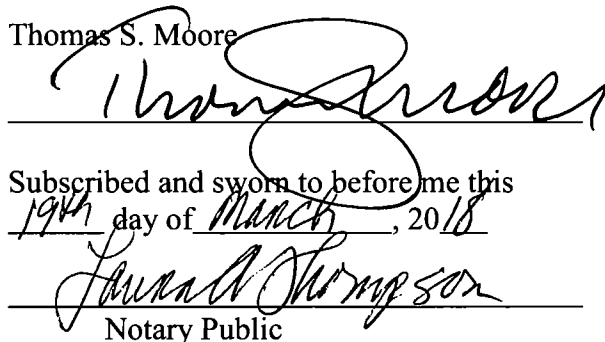 Thomas S. Moore
Thomas S Moore
Subscribed and sworn to before me this
19th day of March, 2018
Laura A Thompson
Notary Public